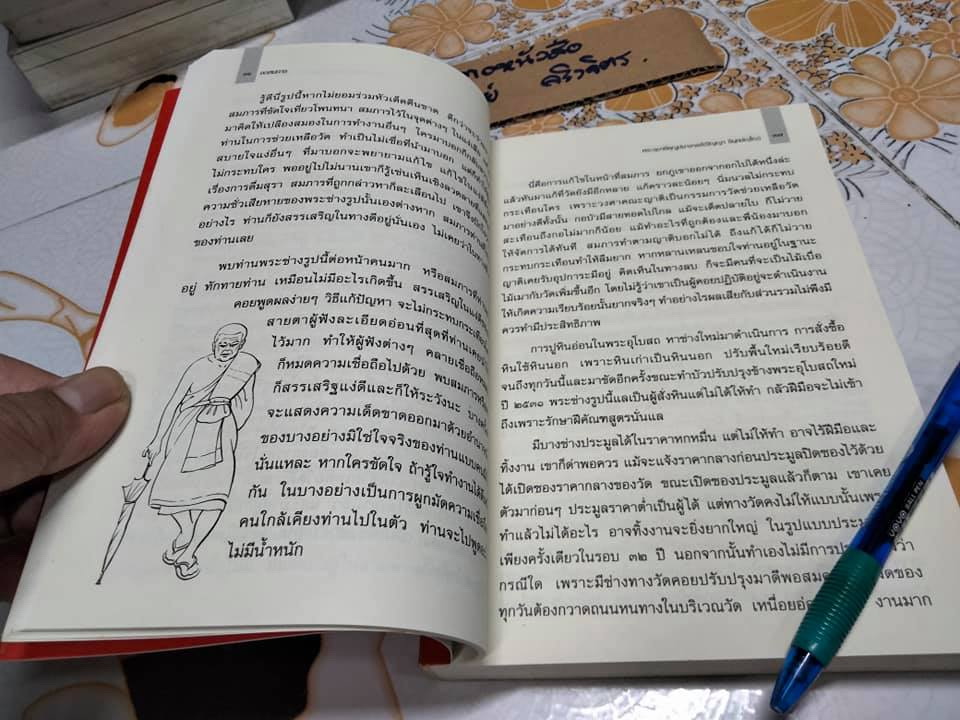 รู้ดีนี่รูปนี้หากไม่ยอมร่วมหัวเด็ดตีนขาด
สมภารที่ขัดใจเที่ยวโพนทนา สมภารไว้ในจุดต่างๆ
มาคิดให้เปลืองสมองในการทำงานอื่นๆ ใครมาบอกก็กลับ
ท่านในการช่วยเหลือวัด ทำเป็นไม่เชื่อที่นำมาบอก
สบายใจแง่อื่นๆ ที่มาบอกจะพยายามแก้ไข
ไม่กระทบใคร พออยู่ไปไม่นานเขาก็รู้เช่นเห็นเชิง
เรื่องการดื่มสุรา สมภารที่ถูกกล่าวหาก็ละเลื่อนไป
ความชั่วเสียหายของพระช่างรูปนั้นเองต่างหาก
อย่างไร ท่านก็ยังสรรเสริญในทางดีอยู่นั่นเอง ไม่เคยว่า
ของท่านเลย
พบท่านพระช่างรูปนี้ต่อหน้าคนมาก หรือสมภาร
อยู่ ทักทายท่าน เหมือนไม่มีอะไรเกิดขึ้น สรรเสริญ
คอยพูดผลง่ายๆ วิธีแก้ปัญหา จะไม่กระทบกระเทือน
สายตาผู้ฟังละเอียดอ่อนที่สุดที่ท่านเคย
ไว้มาก ทำให้ผู้ฟังต่างๆ คลายเชื่อถือ
ก็หมดความเชื่อถือไปด้วย พบสมภาร
ก็สรรเสริญแง่ดีและก็ให้ระวังนะ
จะแสดงความเด็ดขาดออกมาด้วยอำนาจ
ของบางอย่างมิใช่ใจจริงของท่านแบบ
นั่นแหละ หากใครขัดใจ ถ้ารู้ใจทำงานได้
กัน ในบางอย่างเป็นการผูกมัดความ
คนใกล้เคียงท่านไปในตัว ท่านจะไปพูด
ไม่มีน้ำหนัก
๑๗๗
นี่คือการแก้ไขในหน้าที่สมภาร ยกภูเขาออกจากอกไปได้หนึ่งล่ะ
แล้วหันมาแก้ที่วัดยังมีอีกหลาย แก้คราวละน้อยๆ นิ่มนวลไม่กระทบ
กระเทือนใคร เพราะวงศาคณะญาติเป็นกรรมการวัดช่วยเหลือวัด
มาอย่างดีทั้งนั้น กอบัวมีสายทอดไปไกล แม้จะเด็ดปลายใบ ก็ไม่วาย
สะเทือนถึงกอไม่มากก็น้อย แม้ทำอะไรที่ถูกต้องและพี่น้องมาบอก
ให้จัดการได้ทันที สมภารทำตามญาติบอกไม่ได้ ถึงแก้ได้ก็ไม่วาย
กระทบกระเทือนทำให้ลืมยาก หากหลานเหลนชอบใจท่านอยู่ในฐานะ
ญาติเคยรับอุปการะมีอยู่ คิดเห็นในทางลบ ก็จะมีคนที่จะเป็นไม้เบื่อ
ไม้เมากับวัดเพิ่มขึ้นอีก โดยไม่รู้ว่าเขาเป็นผู้คอยปฏิบัติอยู่จะดำเนินงาน
ให้เกิดความเรียบร้อยนั้นยากจริงๆ ทำอย่างไรผลเสียกับส่วนรวมไม่พึงมี
ควรทำมีประสิทธิภาพ
การปูหินอ่อนในพระอุโบสถ หาช่างใหม่มาดำเนินการ การสั่งซื้อ
หินใช้หินนอก เพราะหินเก่าเป็นหินนอก ปรับพื้นใหม่เรียบร้อยดี
จนถึงทุกวันนี้และมาขัดอีกครั้งขณะทำบัวปรับปรุงข้างพระอุโบสถใหม่
ปี ๒๕๓๑ พระช่างรูปนี้แลเป็นผู้สั่งหินแต่ไม่ได้ให้ทำ กลัวฝีมือจะไม่เข้า
ถึงเพราะรักษาฝีคัณฑสูตรนั่นแล
มีบางช่างประมูลได้ในราคาหกหมื่น แต่ไม่ให้ทำ อาจไร้ฝีมือและ
ทิ้งงาน เขาก็ด่าพอควร แม้จะแจ้งราคากลางก่อนประมูลปิดซองไว้ด้วย
ได้เปิดซองราคากลางของวัด ขณะเปิดซองประมูลแล้วก็ตาม เขาเคย
ตัวมาก่อนๆ ประมูลราคาต่ำเป็นผู้ได้ แต่ทางวัดคงไม่ให้แบบนั้น
ทำแล้วไม่ได้อะไร อาจทิ้งงานจะยิ่งยากใหญ่ ในรูปแบบ
เพียงครั้งเดียวในรอบ ๓๒ ปี นอกจากนั้นทำเองไม่มีการ
กรณีใด เพราะมีช่างทางวัดคอยปรับปรุงมาดีพอ
ทุกวันต้องกวาดถนนหนทางในบริเวณวัด งานมาก